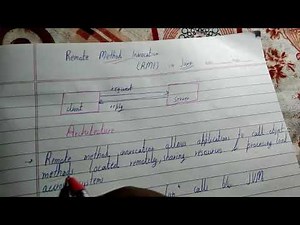 Remote Method Invocation
(RMI) in Java
request
client
server
reply
Architecture
→ Remote method invocation allows application to call object
methods located remotely, sharing resources & processing load
across systems
calls b/w JVM